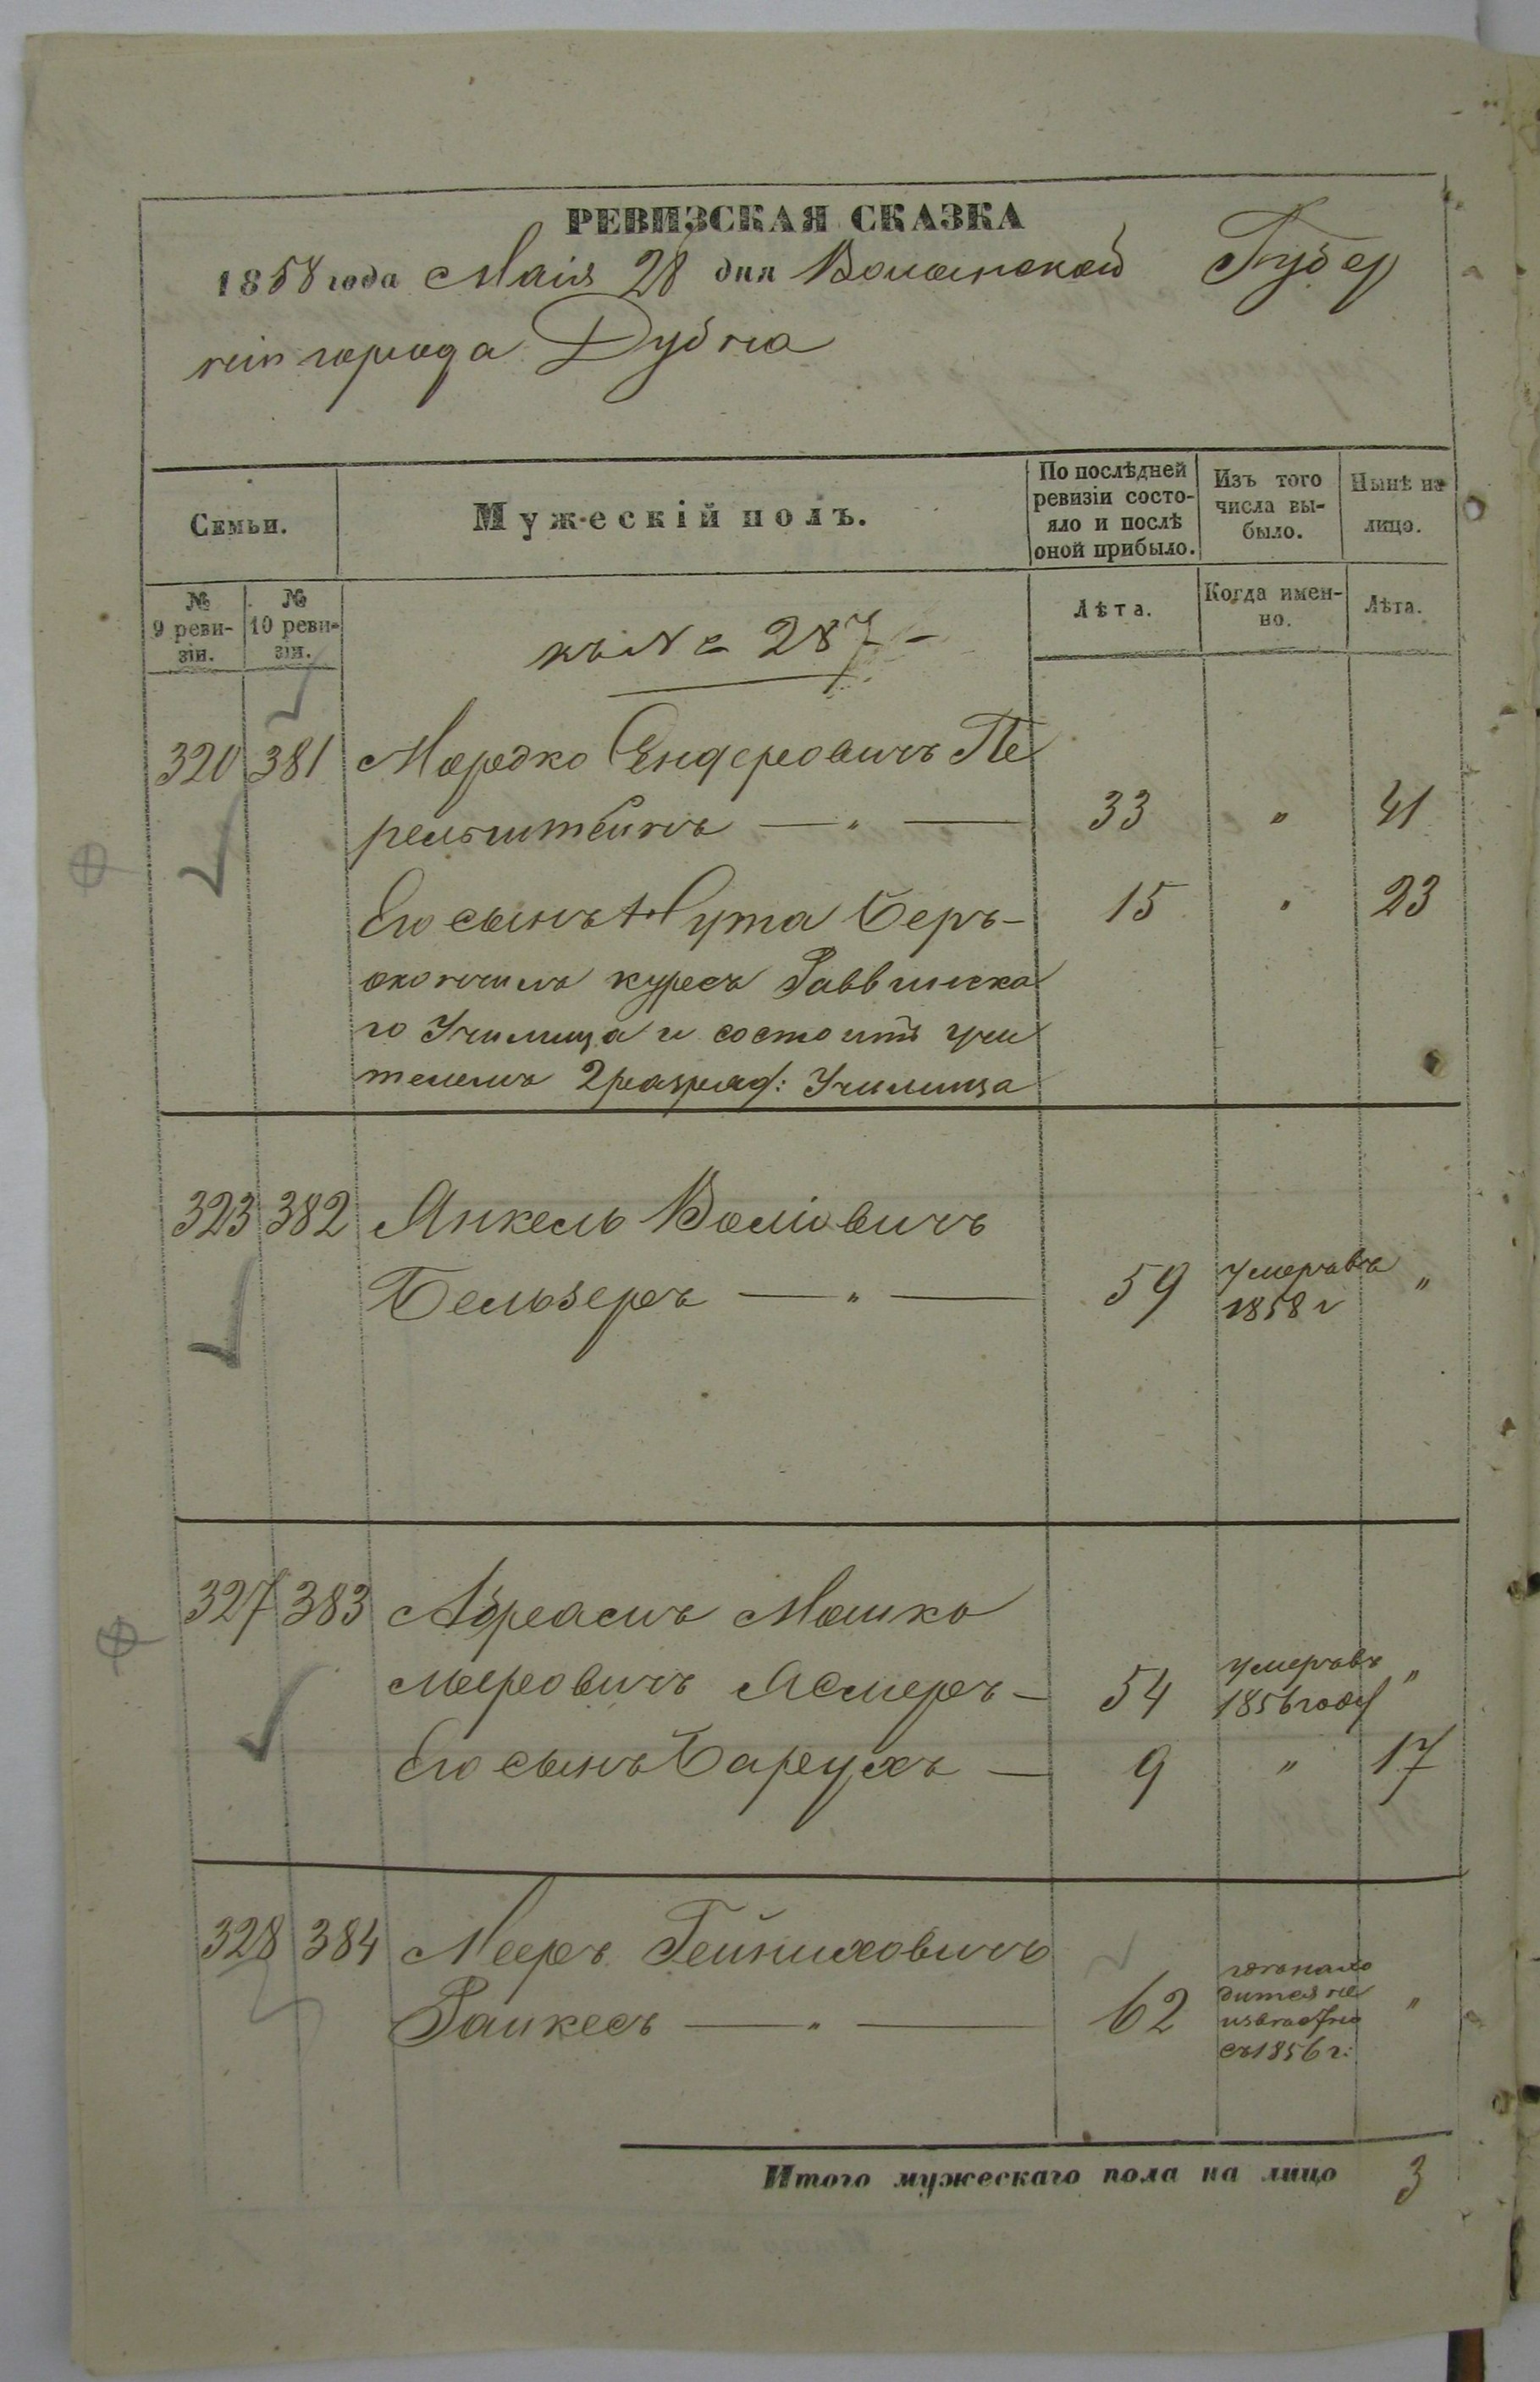 РЕВИЗСКАЯ СКАЗКА
1858 года Маія 28 дня Волынской Губер
ніи города Дубна
Семьи.
Мужескій полъ.
По послѣдней ревизіи состо-
яло и послѣ оной прибыло.
Изъ того числа вы-
было.
Нынѣ на лицо.
№ 9 реви-
зіи.
№ 10 реви-
зіи.
къ № 287
Лѣта.
Когда имен-
но.
Лѣта.
320 381 Мордко Ендеровичъ Пе
рельштейнъ — „ — 33 „ 41
Его сынъ Нута Беръ - 15 „ 23
окончилъ курсъ Раввинска
го Училища и состоитъ учи
телемъ 2 разряд: Училища
323 382 Янкель Волiовичъ
Бельзеръ — „ — 59 умеръ въ 1858 г „
327 383 Абрамъ Мошко
Мееровичъ Ясмеръ - 54 умеръ въ 1856 году „
Его сынъ Барухъ — 9 „ 17
328 384 Мееръ Гейниховичъ
Ранкесъ — „ — 62 „
съ 1856 г:
Итого мужескаго пола на лицо 3